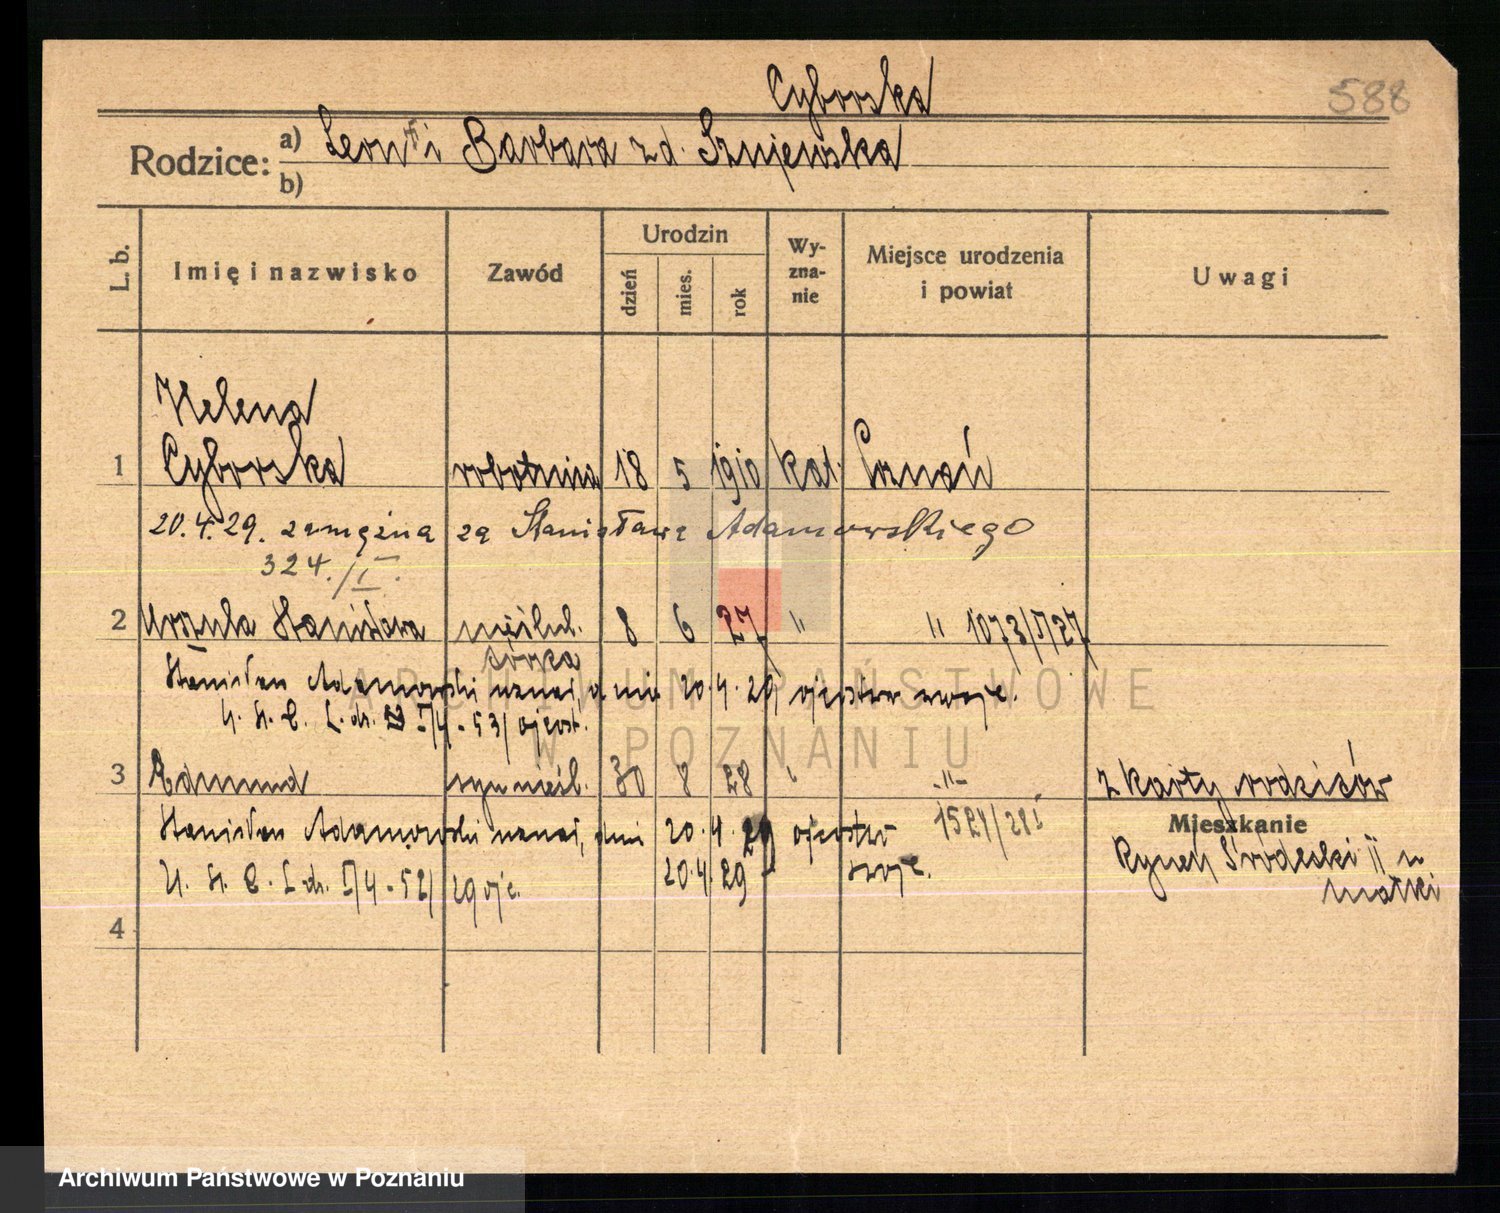 Cyborska
588
Rodzice: a) Leon i Barbara zd. Sznjewska
b)
L. b. Imię i nazwisko Zawód Urodzin dzień mies. rok Wy-zna-nie Miejsce urodzenia i powiat Uwagi
Helena
1 Cyborska robotnica 18 5 1910 kat. Poznań
20.4.29. zamężna za Stanisława Adamowskiego
324./I.
2 Urszula Stanisława nieślub. 8 6 27 " " 1073/I/27
córka
Stanisław Adamowski uznał, dnia 20.4.29 ojcostwo swoje.
U. St. C. L. dz. I/4 - 53/ ojcost.
3 Edmund syn nieśl. 30 8 28 " -"- z karty rodziców
Stanisław Adamowski uznał, dnia 20.4.29 ojcostwo 1521/28 I
Mieszkanie
Rynek Śródecki II u
matki
U. St. C. L. dz. I/4 - 52/ 29 ojc. 20.4.29 swoje.
4
ARCHIWUM PAŃSTWOWE
W POZNANIU
Archiwum Państwowe w Poznaniu